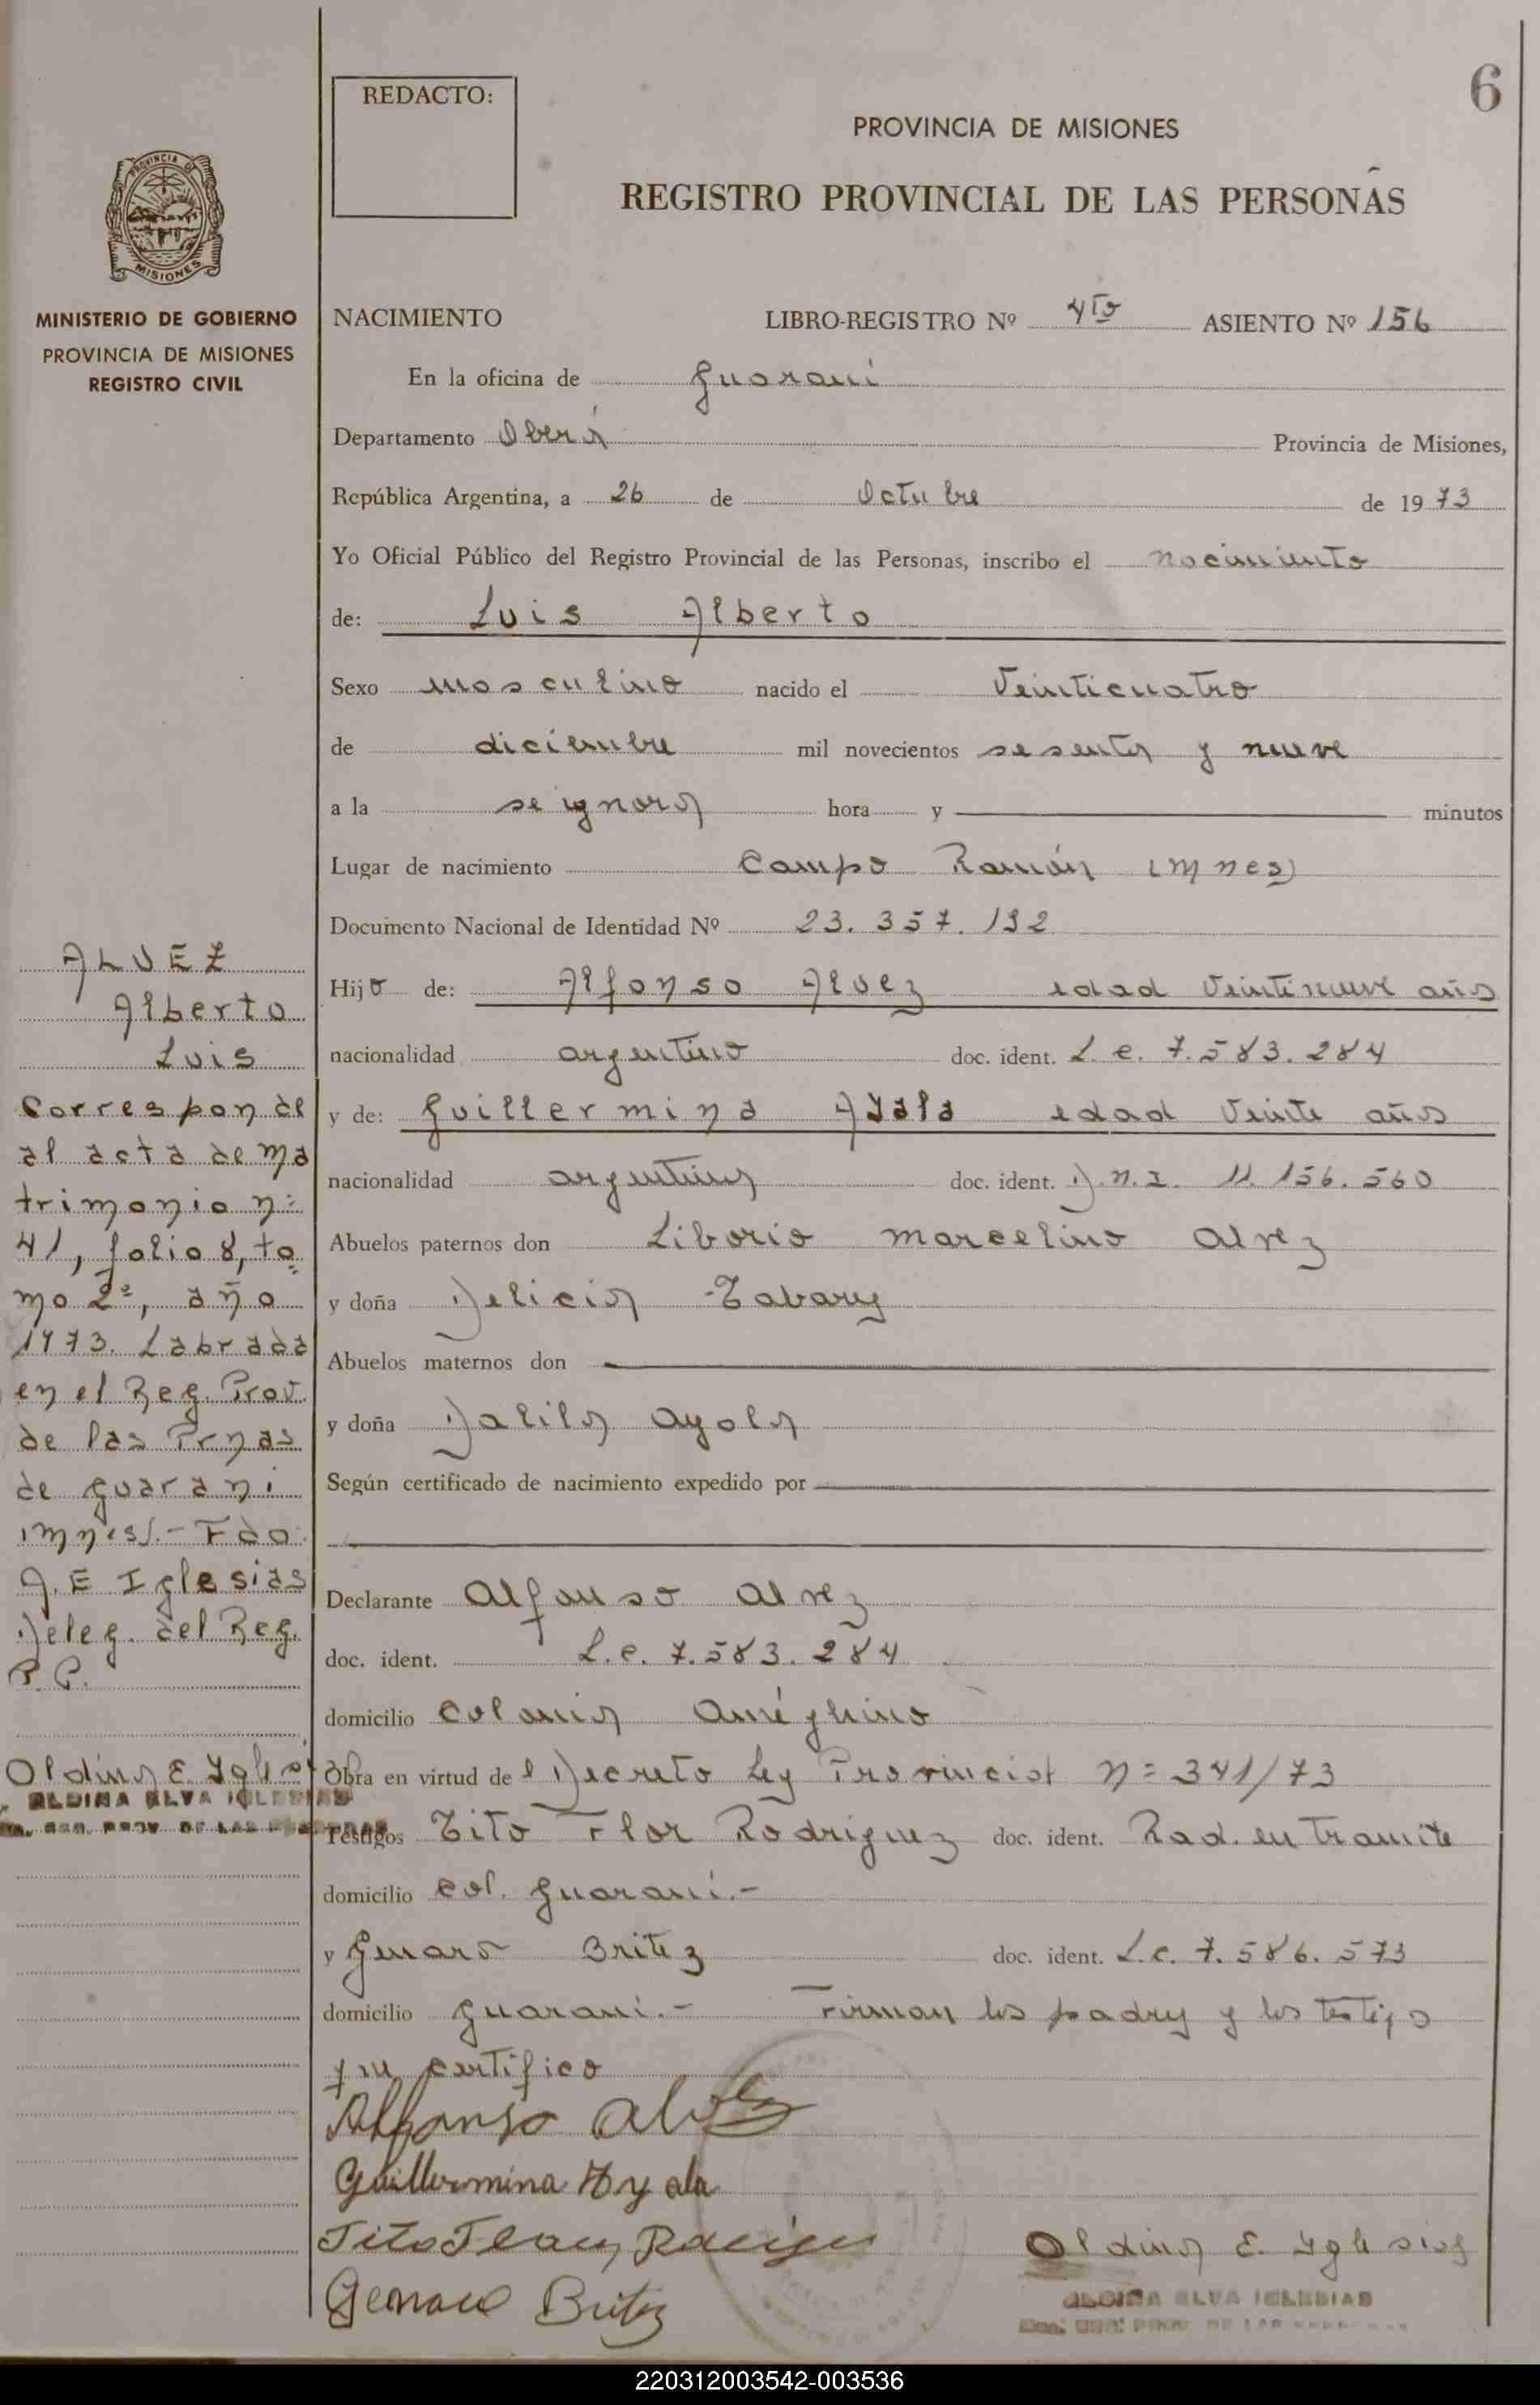 6
REDACTO:
PROVINCIA DE MISIONES
REGISTRO PROVINCIAL DE LAS PERSONAS
PROVINCIA DE
MISIONES
MINISTERIO DE GOBIERNO
PROVINCIA DE MISIONES
REGISTRO CIVIL
NACIMIENTO LIBRO-REGISTRO Nº 4to ASIENTO Nº 156
En la oficina de Guaraní
Departamento Oberá Provincia de Misiones,
República Argentina, a 26 de Octubre de 1973
Yo Oficial Público del Registro Provincial de las Personas, inscribo el nacimiento
de: Luis Alberto
Sexo masculino nacido el Veinticuatro
de diciembre mil novecientos sesenta y nueve
a la se ignora hora y minutos
Lugar de nacimiento Campo Ramón (Mnes)
Documento Nacional de Identidad Nº 23.357.132
Hijo de: Alfonso Alvez edad Veintinueve años
nacionalidad argentino doc. ident. L.e. 7.583.284
y de: Guillermina Ayala edad Veinte años
nacionalidad argentina doc. ident. D.N.I. 11.156.560
Abuelos paternos don Liborio Marcelino Alvez
y doña Delicia Tabary
Abuelos maternos don
y doña Dalila Ayala
Según certificado de nacimiento expedido por
Declarante Alfonso Alvez
doc. ident. L.e. 7.583.284
domicilio Colonia Améghino
Obra en virtud del Decreto Ley Provincial n= 341/73
Testigos Tito Flor Rodriguez doc. ident. Rad. en Tramite
domicilio Col. Guaraní.-
y Genaro Britez doc. ident. L.e. 7.586.573
domicilio Guaraní.- Firman los padres y los testigo
que certifico
Alfonso Alvez
Guillermina Ayala
Tito
Genaro Britez
Oldina E. Yglesias
ALDINA ELVA IGLESIAS
ALVEZ
Alberto
Luis
Corresponde
al acta de ma
trimonio n=
41, folio 8, to
mo 2º, año
1973. Labrada
en el Reg. Prov.
de las Prnas
de Guarani
(Mnes).- Fdo:
J. E Iglesias
Deleg. del Reg.
P.P.
Oldina E. Yglesia
ALDINA ELVA IGLESIAS
220312003542-003536